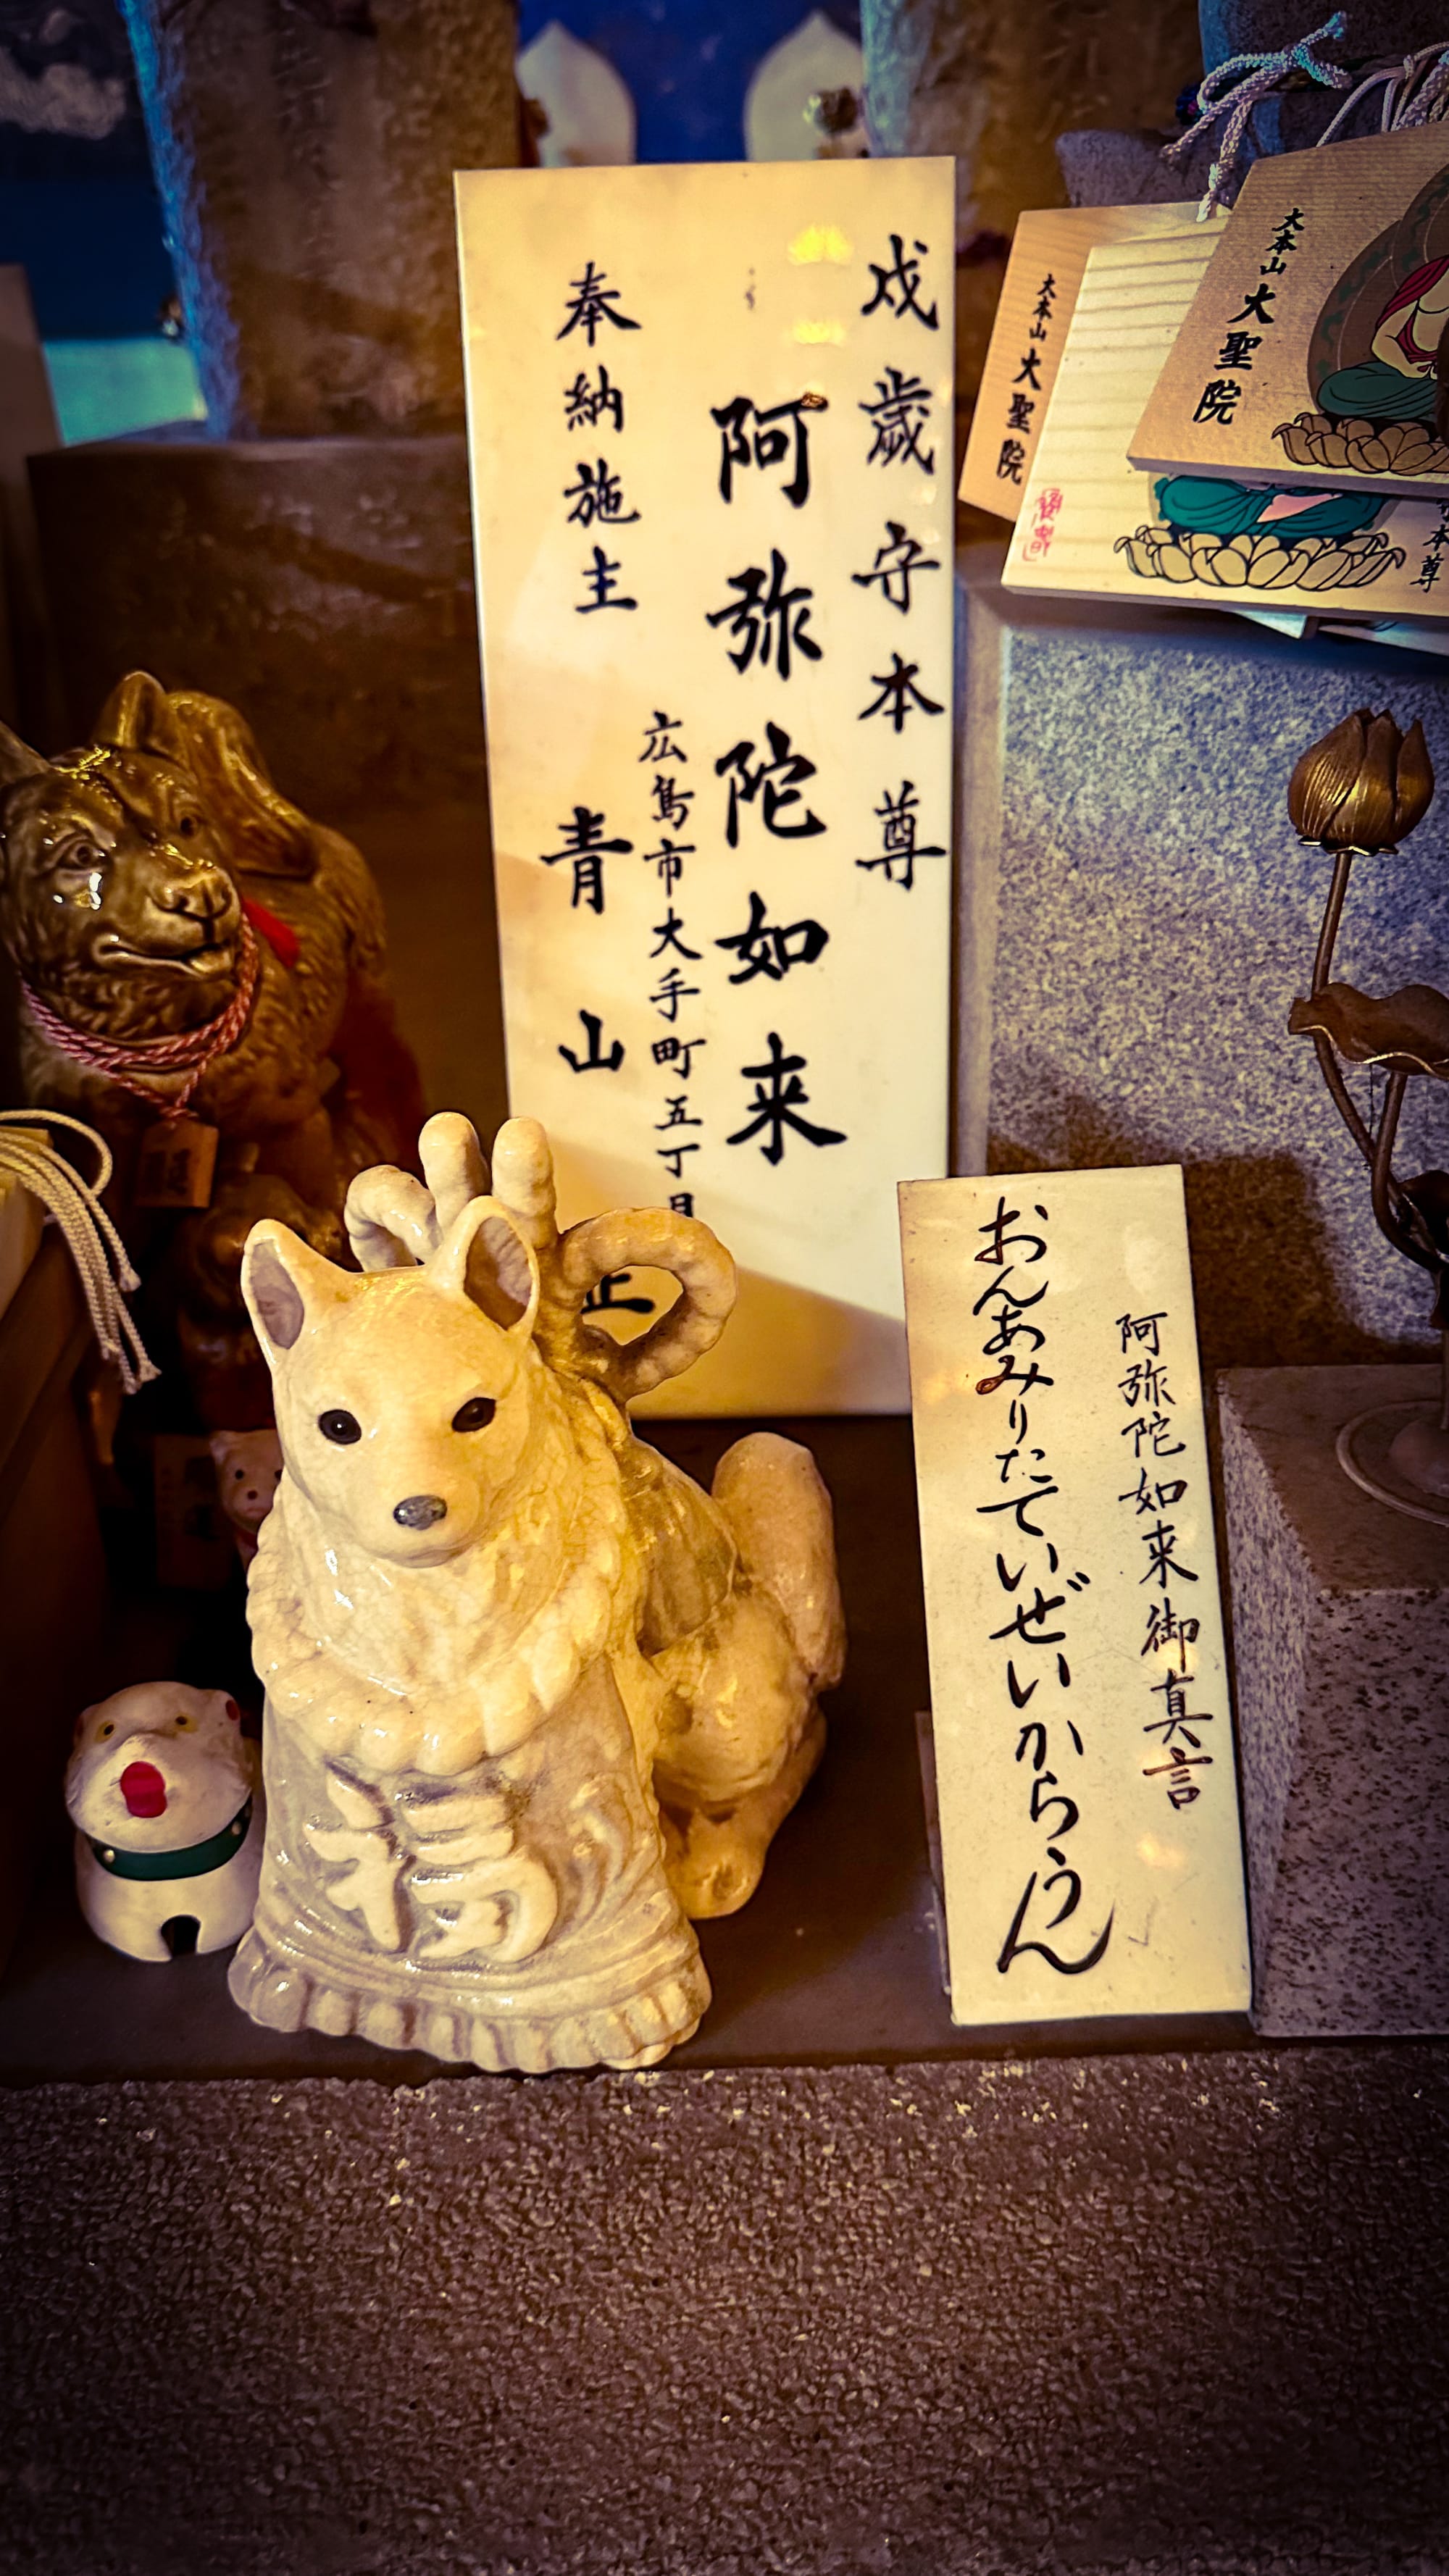 戌歳守本尊
阿弥陀如来
広島市大手町五丁目
奉納施主 青山
正
阿弥陀如来御真言
おんあみりたていぜいからうん
大本山 大聖院
大本山 大聖院
本尊
福